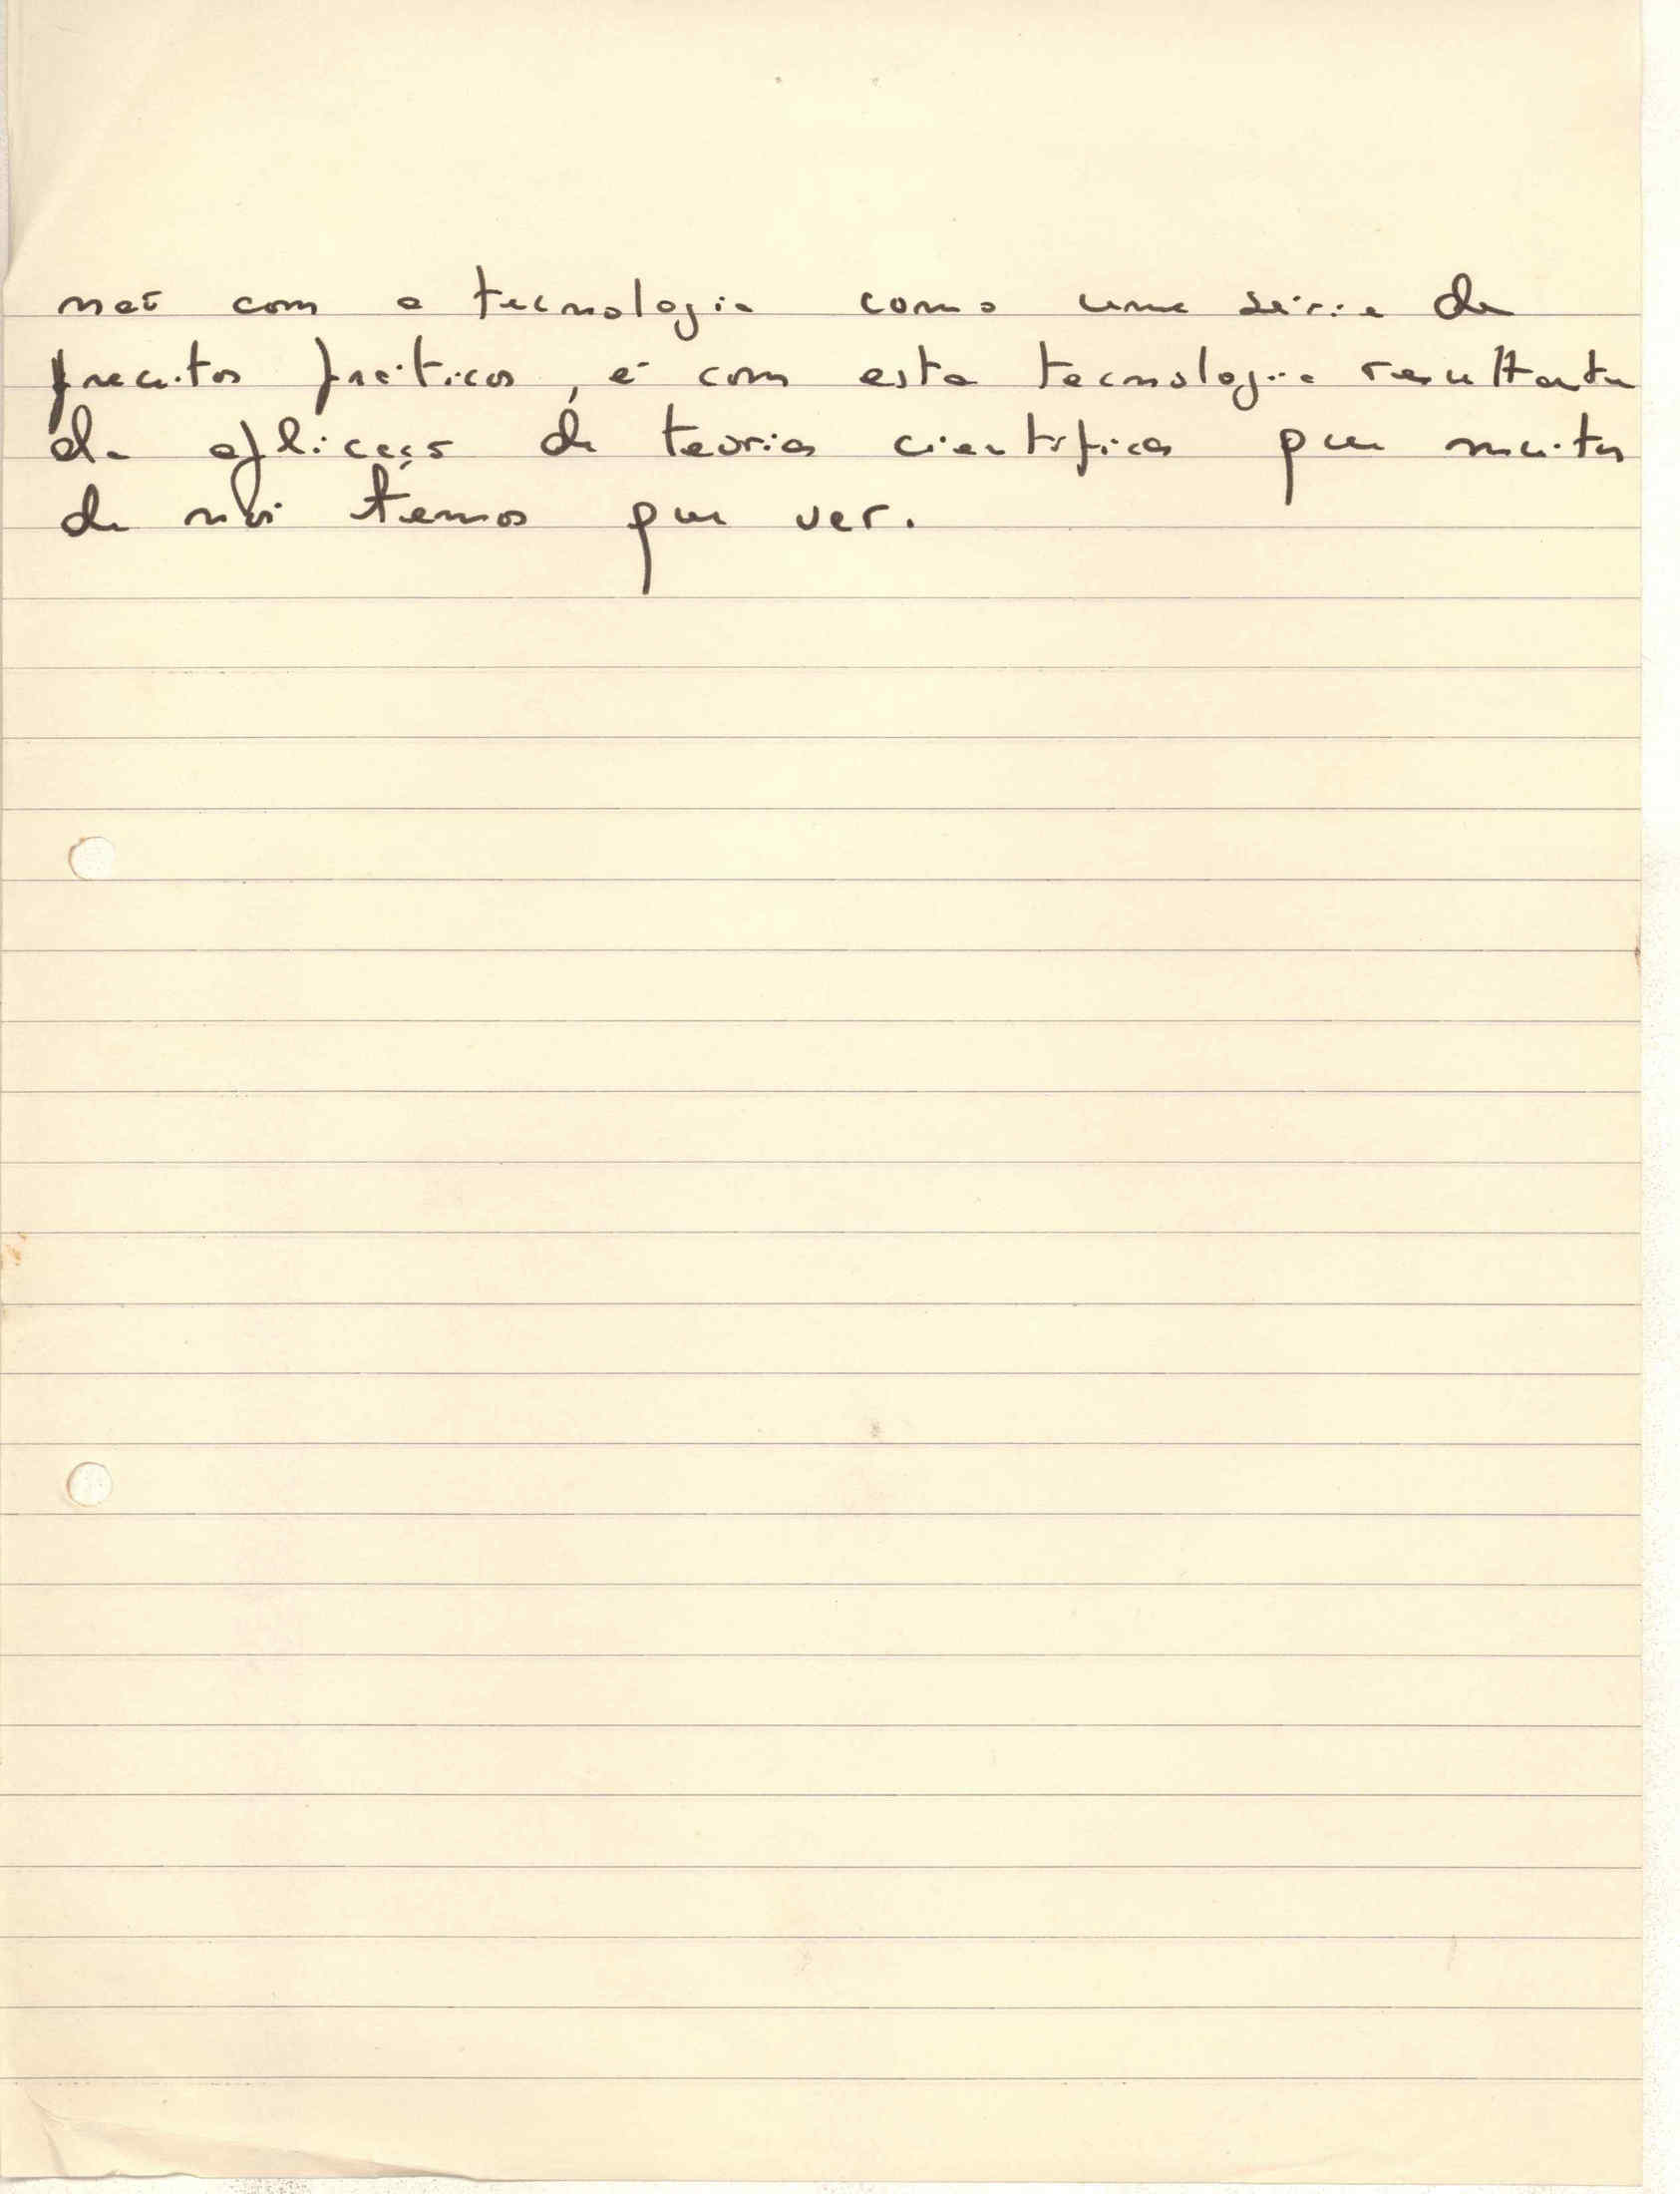 não com a tecnologia como uma série de
preceitos práticos, é com esta tecnologia resultante
da aplicação de teorias científicas que muitos
de nós temos que ver.